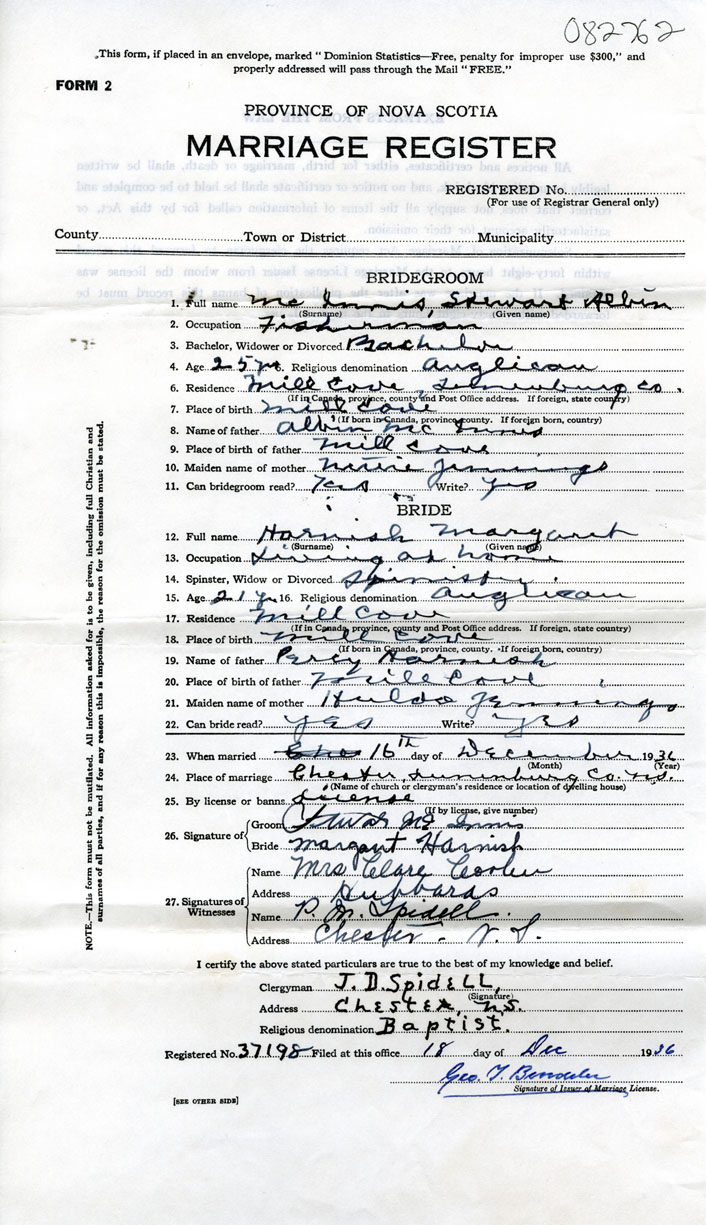 082762
„This form, if placed in an envelope, marked “ Dominion Statistics—Free, penalty for improper use $300,” and
properly addressed will pass through the Mail “ FREE.”
FORM 2
PROVINCE OF NOVA SCOTIA
MARRIAGE REGISTER
REGISTERED No.
(For use of Registrar General only)
County Town or District Municipality
BRIDEGROOM
1. Full name Mc Innis, Stewart Albin
(Surname) (Given name)
2. Occupation Fisherman
3. Bachelor, Widower or Divorced Bachelor
4. Age 25 yrs. Religious denomination Anglican
6. Residence Mill Cove, Lunenburg Co.
(If in Canada, province, county and Post Office address. If foreign, state country)
7. Place of birth Mill Cove
(If born in Canada, province, county. If foreign born, country)
8. Name of father Albin Mc Innis
9. Place of birth of father Mill Cove
10. Maiden name of mother Jennings
11. Can bridegroom read? Yes Write? Yes
BRIDE
12. Full name Harnish Margaret
(Surname) (Given name)
13. Occupation Living at home
14. Spinster, Widow or Divorced Spinster
15. Age 21 y. 16. Religious denomination Anglican
17. Residence Mill Cove
(If in Canada, province, county and Post Office address. If foreign, state country)
18. Place of birth Mill Cove
(If born in Canada, province, county. If foreign born, country)
19. Name of father Percy Harnish
20. Place of birth of father Mill Cove
21. Maiden name of mother Hulda Jennings
22. Can bride read? Yes Write? Yes
23. When married 16th day of December 1936
(Month) (Year)
24. Place of marriage Chester, Lunenburg Co. N.S.
(Name of church or clergyman's residence or location of dwelling house)
25. By license or banns License
(If by license, give number)
26. Signature of
Groom Stewart Mc Innis
Bride Margaret Harnish
27. Signatures of
Witnesses
Name Mrs Clare
Address Hubbards
Name P. M. Spidell.
Address Chester - N.S.
I certify the above stated particulars are true to the best of my knowledge and belief.
Clergyman J. D. Spidell,
(Signature)
Address Chester, N.S.
Religious denomination Baptist.
Registered No. 37198 Filed at this office 18 day of Dec 1936
Geo. T.
Signature of Issuer of Marriage License.
[SEE OTHER SIDE]
NOTE.—This form must not be mutilated. All information asked for is to be given, including full Christian and
surnames of all parties, and if for any reason this is impossible, the reason for the omission must be stated.